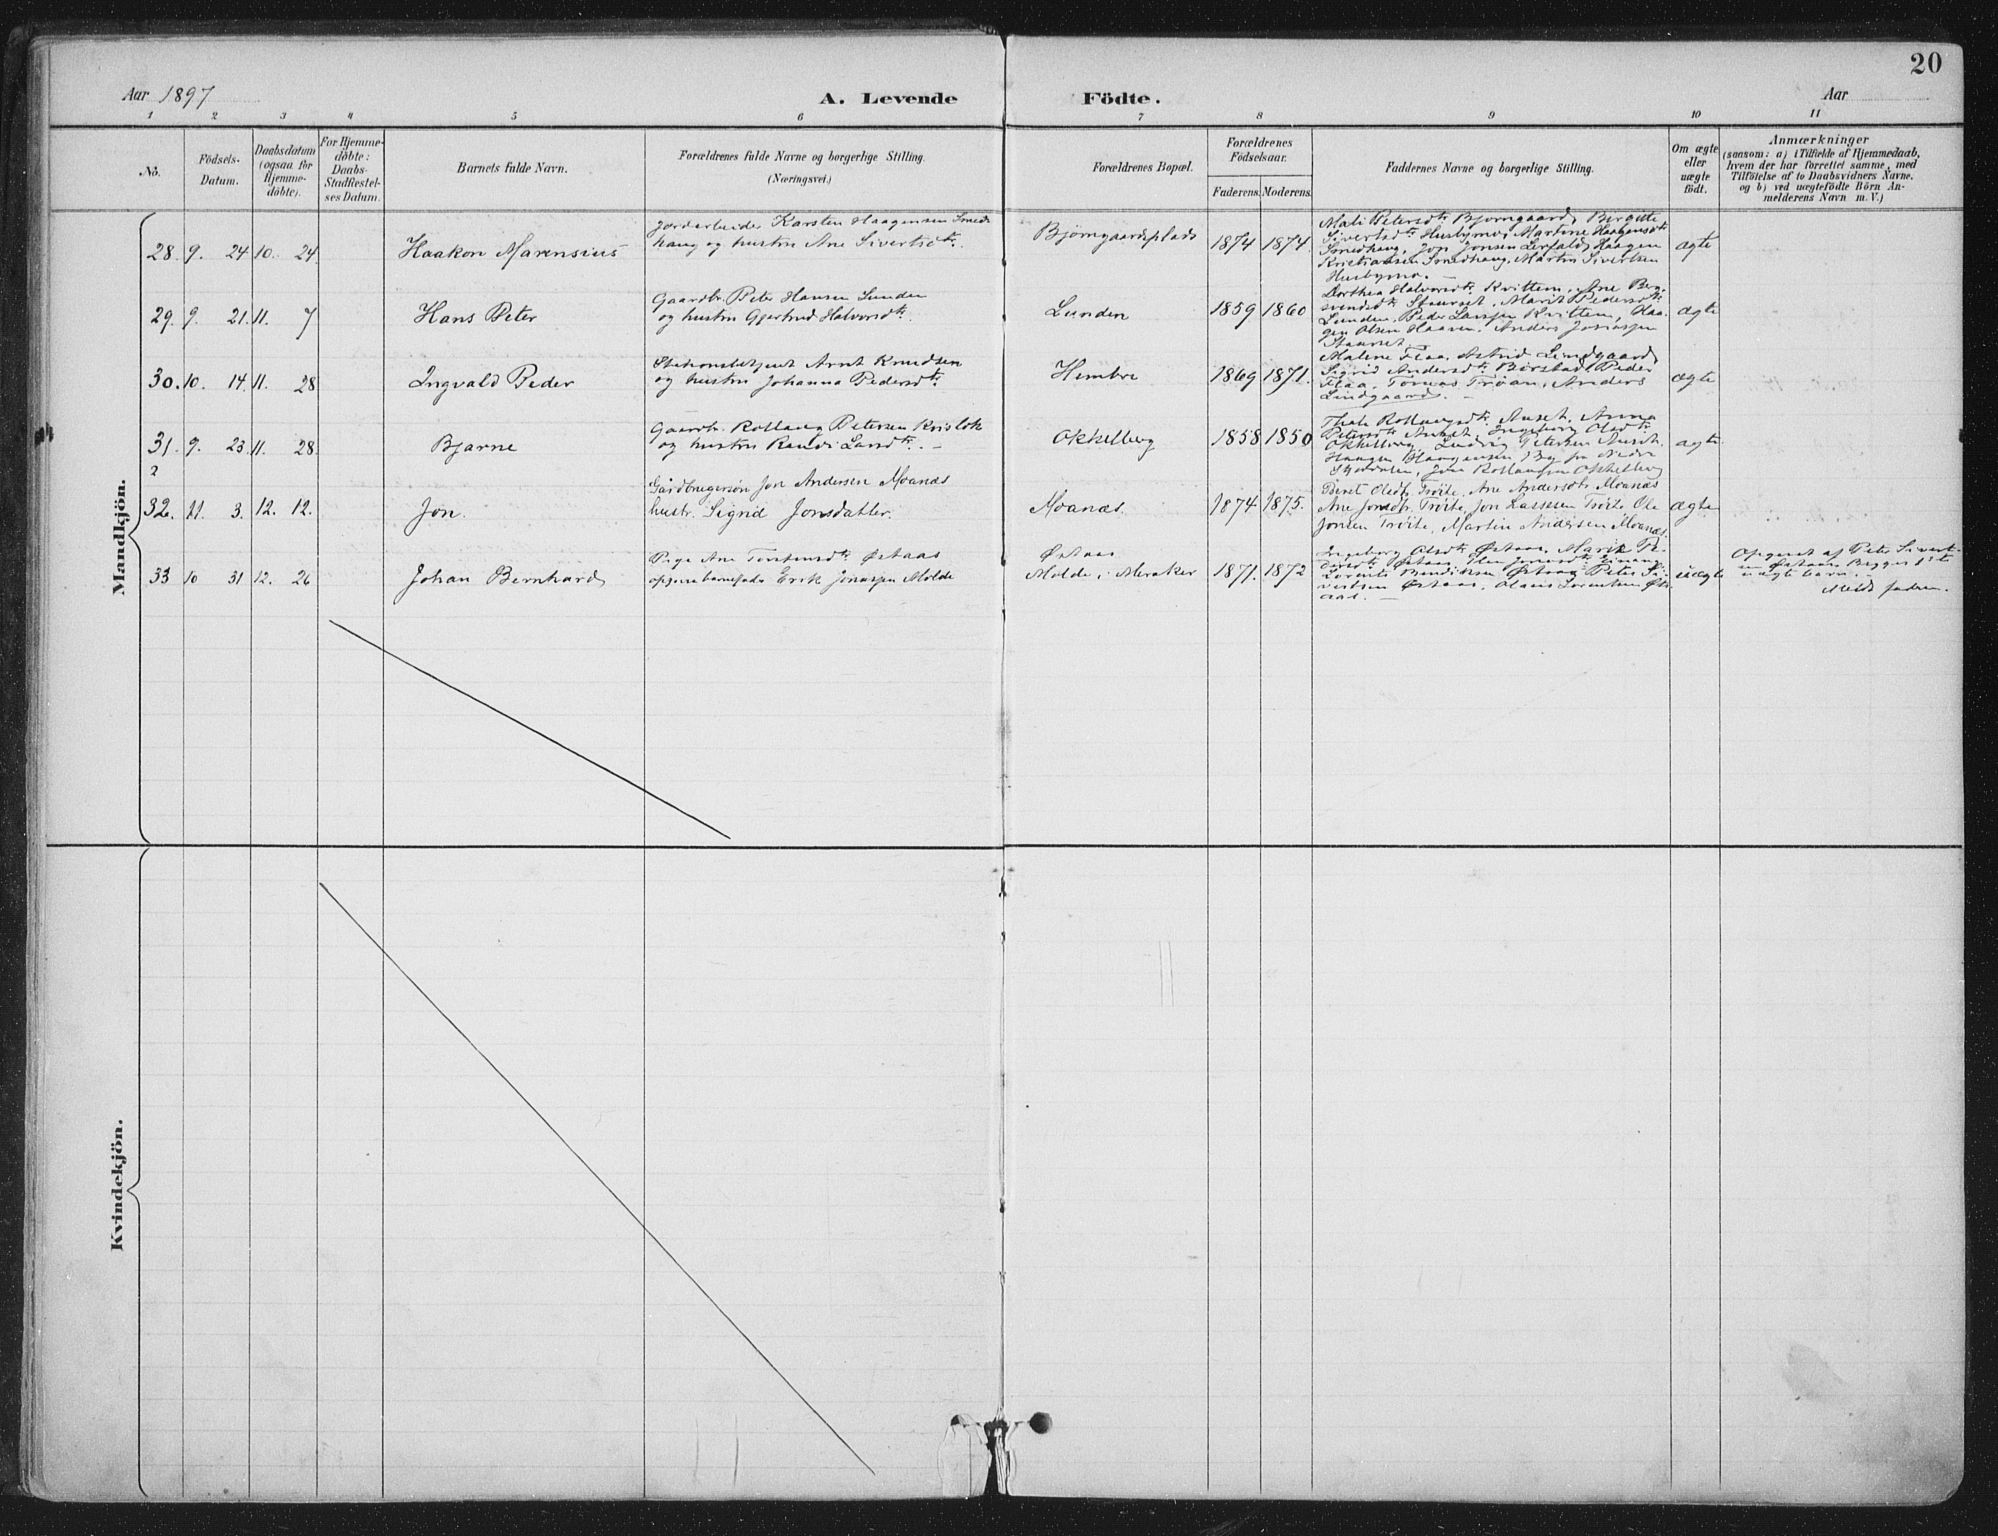 20
Aar 1897
A. Levende Födte.
Aar
1 2 3 4 5 6 7 8 9 10 11
No.
Födsels-
Datum.
Daabsdatum
(ogsaa for
Hjemme-
döbte).
For Hjemme-
döbte:
Daabs-
Stadfæstel-
ses Datum.
Barnets fulde Navn.
Forældrenes fulde Navne og borgerlige Stilling.
(Næringsvei.)
Forældrenes Bopæl.
Forældrenes
Födselsaar.
Faderens. Moderens.
Faddernes Navne og borgerlige Stilling.
Om ægte
eller
uægte
födt.
Anmærkninger
(saasom: a) i Tilfælde af Hjemmedaab,
hvem der har forrettet samme, med
Tilföielse af to Daabsvidners Navne,
og b) ved uægtefödte Börn An-
melderens Navn m. V.)
Mandkjön.
28. 9. 24 10. 24
Haakon Marensius
Jordarbeider Karsten Haagensen Smed
haug og hustru Ane Sivertsdtr.
Bjørngaardsplads
1874 1874
Mali Petersdtr Bjørngaard, Bergitte
Sivertsdtr Husbymo, Martine Haagensdtr
Smedhaug, Jon Jonsen Lerfald, Haagen
Kristiansen Smedhaug, Martin Sivertsen
Husbymo. —
ægte
29. 9. 21. 11. 7
Hans Peter
Gaardbr. Peter Hansen Lunden
og hustru Gjertrud Halvorsdtr.
Lunden
1859 1860
Dorthea Halvorsdtr Kvittem, Ane Berg-
svendsdtr Staurset, Marit Pedersdtr
Lunden, Peder Larssen Kvittem, Haa-
gen Olsen Haaven, Anders Josiassen
Staurset. —
ægte
30. 10. 14. 11. 28
Ingvald Peder
Stationsbetjent Arnt Knudsen
og hustru Johanna Pedersdtr.
Hembre
1869 1871.
Malene Flaa, Astrid Lindgaard,
Sigrid Andersdtr Børstad, Peder
Flaa, Tomas Trøan, Anders
Lindgaard. —
ægte
31. 9. 23. 11. 28.
Bjarne
Gaardbr. Rollaug Petersen
og hustru Randi Larsdtr. —
Okkelberg
1858 1850
Rollaugsdtr Auset, Anna
Petersdtr Auset, Ingeborg Olsdtr
Okkelberg, Ludvig Petersen Auset,
Haagen Haagensen By fra Nedre
Stjørdalen, Jon Rollaugsen Okkelberg
ægte
2
32. 11. 3. 12. 12.
Jon.
Gårdbrugersøn Jon Andersen Moanæs
hustr. Sigrid Jonsdatter.
Moanæs.
1874 1875.
Beret Olsdtr Trøite, Ane Andersdtr Moanæs
Ane Jonsdtr Trøite, Jon Larssen Trøite, Ole
Jonsen Trøite, Martin Andersen Moanæs.
ægte
33 10 31 12. 26
Johan Bernhard
Pige Ane Torstensdtr Østaas
opgiven barnefader Erik Jonassen Molde
Østaas
Molde i Meraker
1871. 1872
Ingeborg Olsdtr Østaas, Marit Pe-
Lorents Bendiksen Østaas, Peter Si-
vertsen Østaas, Olaus Lorentsen Øst-
aas. —
uægte
Opgivet af Peter Sivert-
sen Østaas. Begges 1ste
uægte barn. —
Meldt faderen.
Kvindekjön.